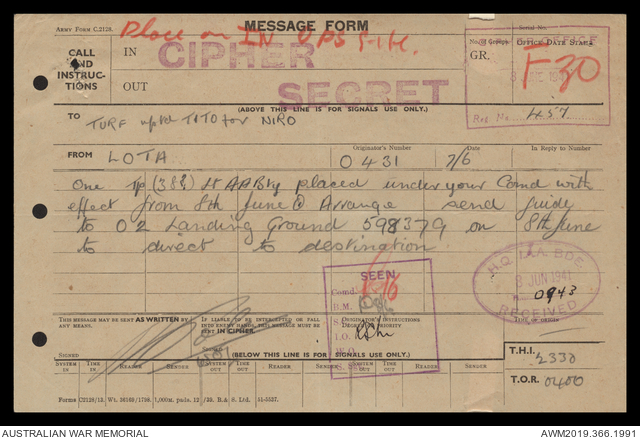 Army Form C.2128.
MESSAGE FORM
Serial No.
Place on IN OPS file.
CALL AND INSTRUCTIONS
IN
CIPHER
No. of Groups
OFFICE DATE STAMP
GR.
F30
OUT
SECRET
Ref No 457
(ABOVE THIS LINE IS FOR SIGNALS USE ONLY.)
TO
TURF TITO for NIRO
Originator's Number
In Reply to Number
FROM
LOTA
0431
7/6
One Tp (38?) Lt AA Bty placed under your Comd with
effect from 8th June Arrange send guide
to 02 Landing Ground 598379 on 8th June
to direct to destination.
SEEN
H.Q. I.A.A. BDE.
8 JUN 1941
0943
RECEIVED
Comd.
B.M.
I.O.
W.O.
THIS MESSAGE MAY BE SENT AS WRITTEN BY ANY MEANS.
IF LIABLE TO BE INTERCEPTED OR FALL INTO ENEMY HANDS, THIS MESSAGE MUST BE SENT IN CIPHER.
ORIGINATOR'S INSTRUCTIONS
DEGREE OF PRIORITY
TIME OF ORIGIN
SIGNED
(BELOW THIS LINE IS FOR SIGNALS USE ONLY.)
T.H.I. 2330
SYSTEM IN
TIME IN
READER
SENDER
SYSTEM OUT
TIME OUT
READER
SENDER
SYSTEM OUT
TIME OUT
READER
SENDER
T.O.R. 0400
Forms C2128/13. Wt. 36169/1798. 1,000m. pads. 12/39. B & S. Ltd. 51-5537.
AUSTRALIAN WAR MEMORIAL
AWM2019.366.1991